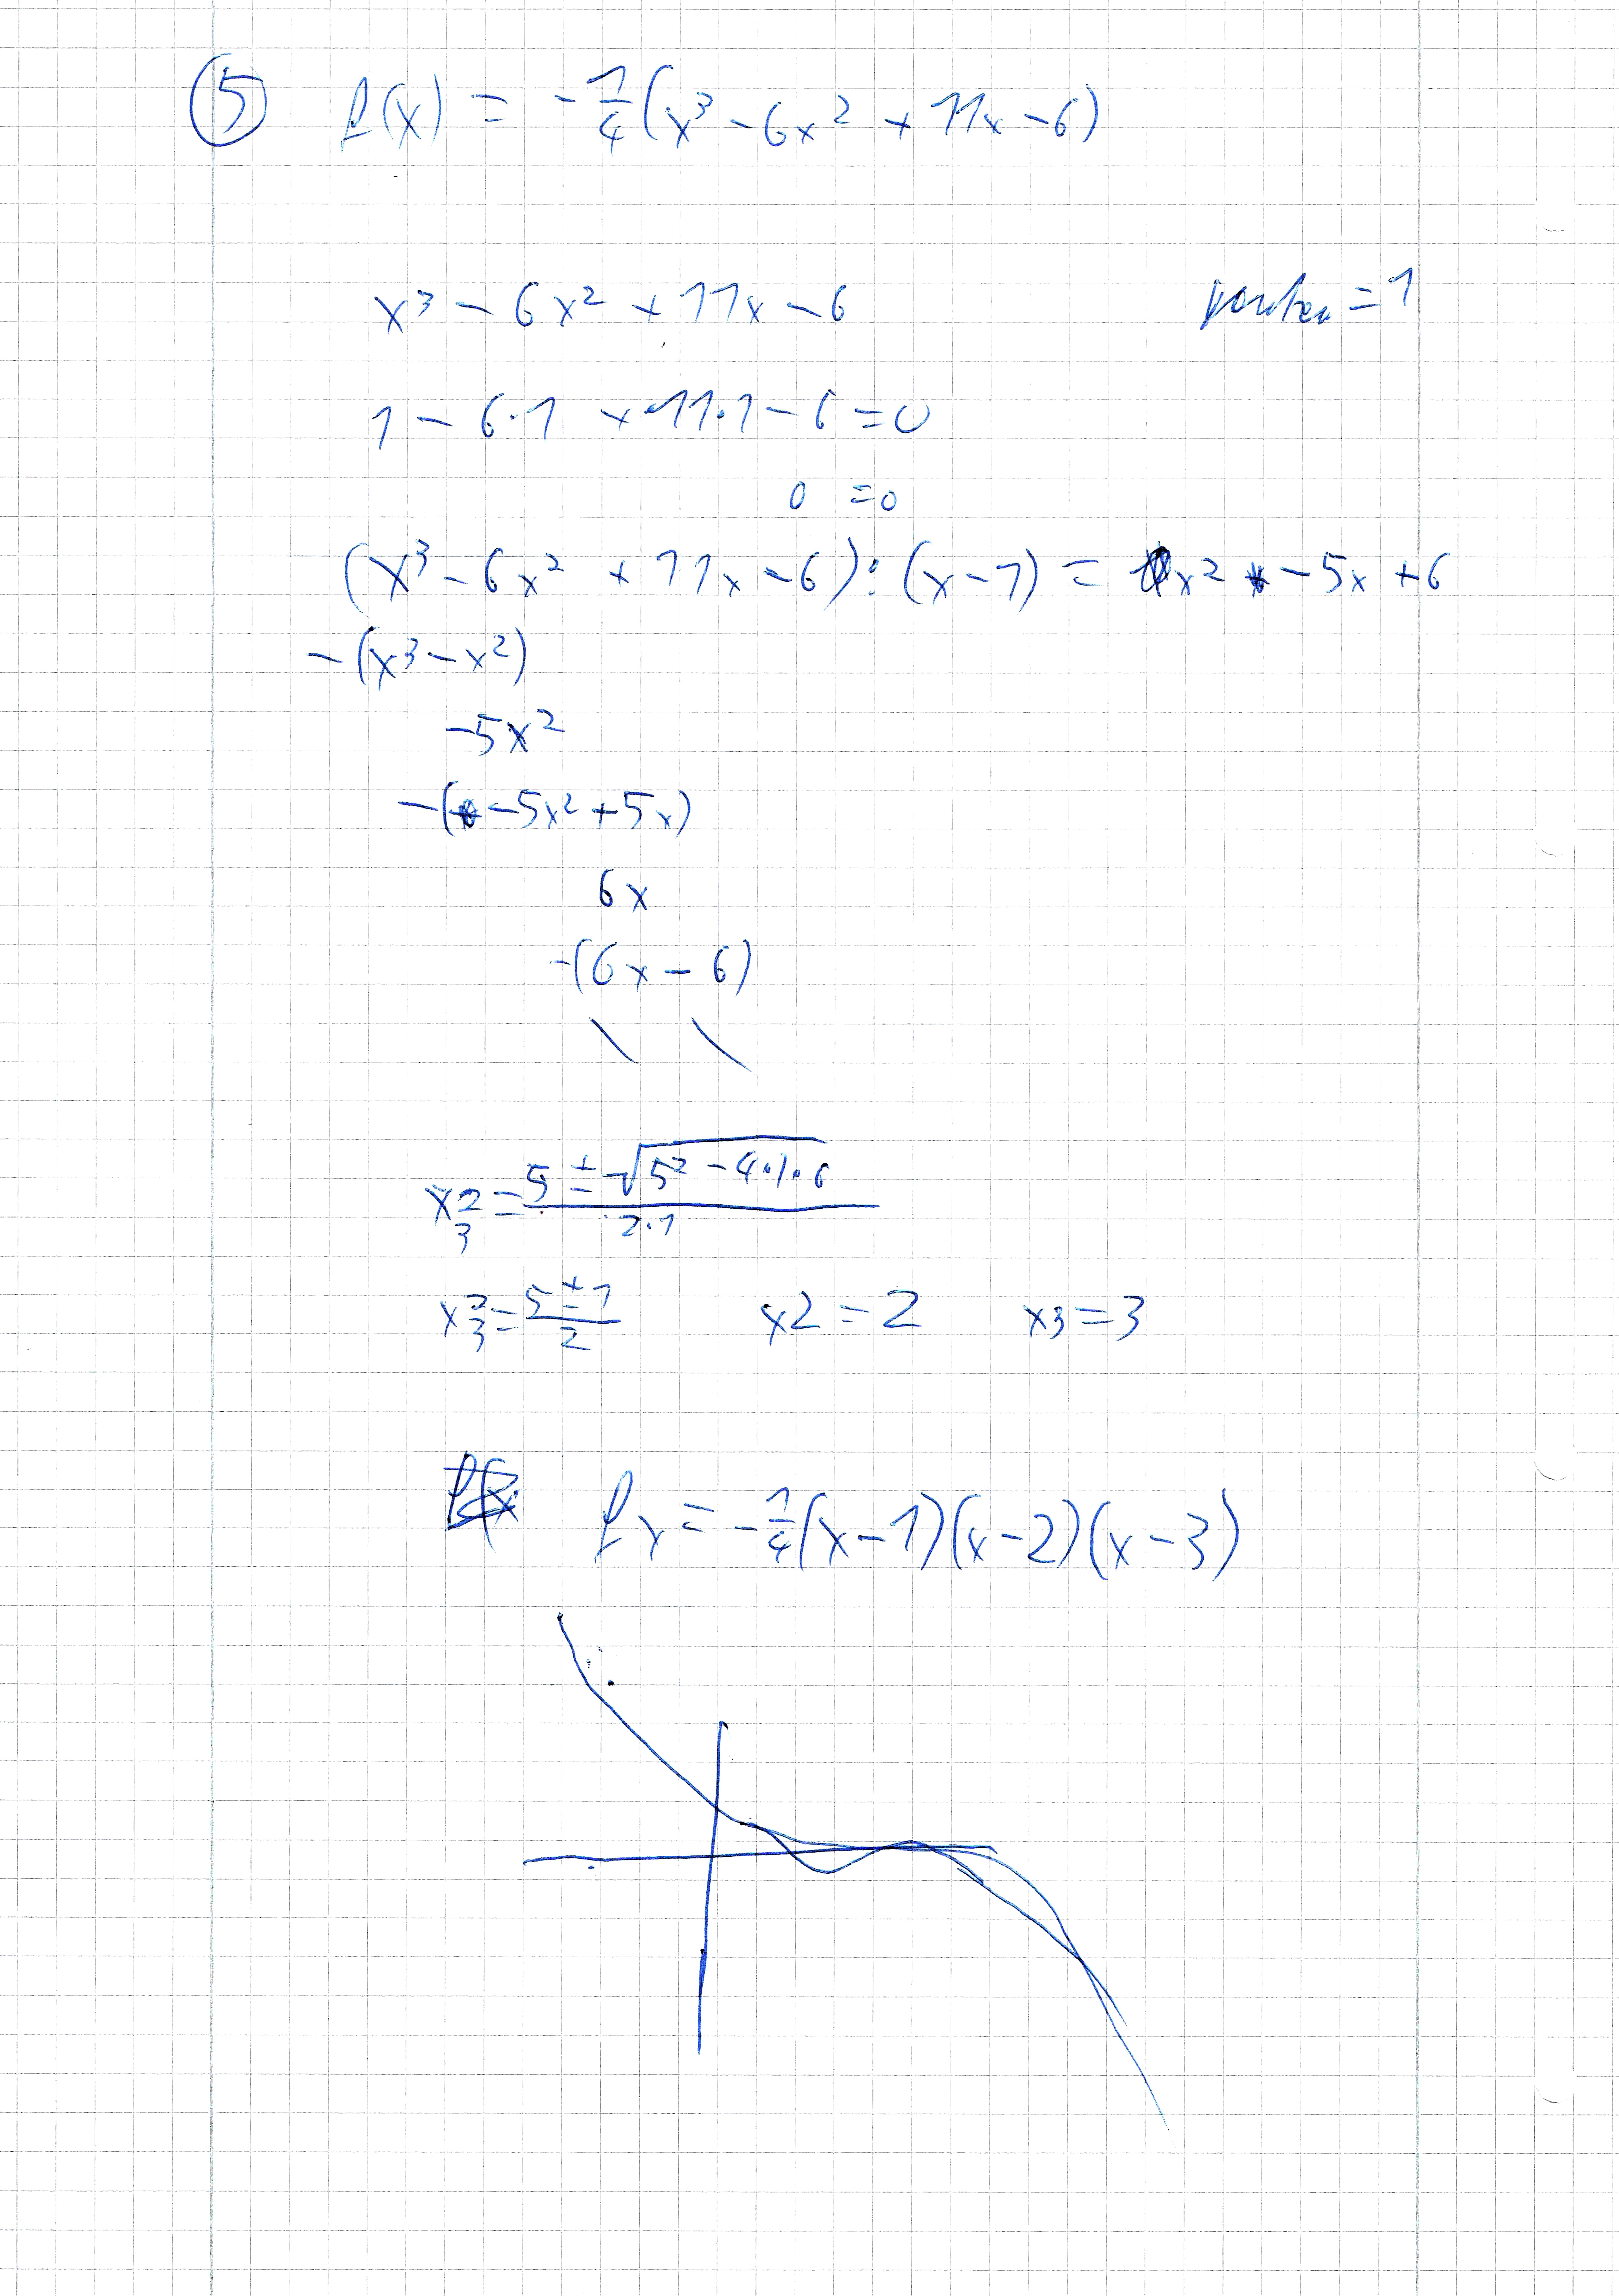 5 f(x) = -1/4(x³ - 6x² + 11x - 6)
x³ - 6x² + 11x - 6 = 1
1 - 6·1 + 11·1 - 6 = 0
0 = 0
(x³ - 6x² + 11x - 6) : (x - 1) = x² - 5x + 6
-(x³ - x²)
-5x²
-(-5x² + 5x)
6x
-(6x - 6)
x2/3 = (5 ± √(5² - 4·1·6))/(2·1)
x2/3 = (5 ± 1)/2 x2 = 2 x3 = 3
fx = -1/4(x-1)(x-2)(x-3)